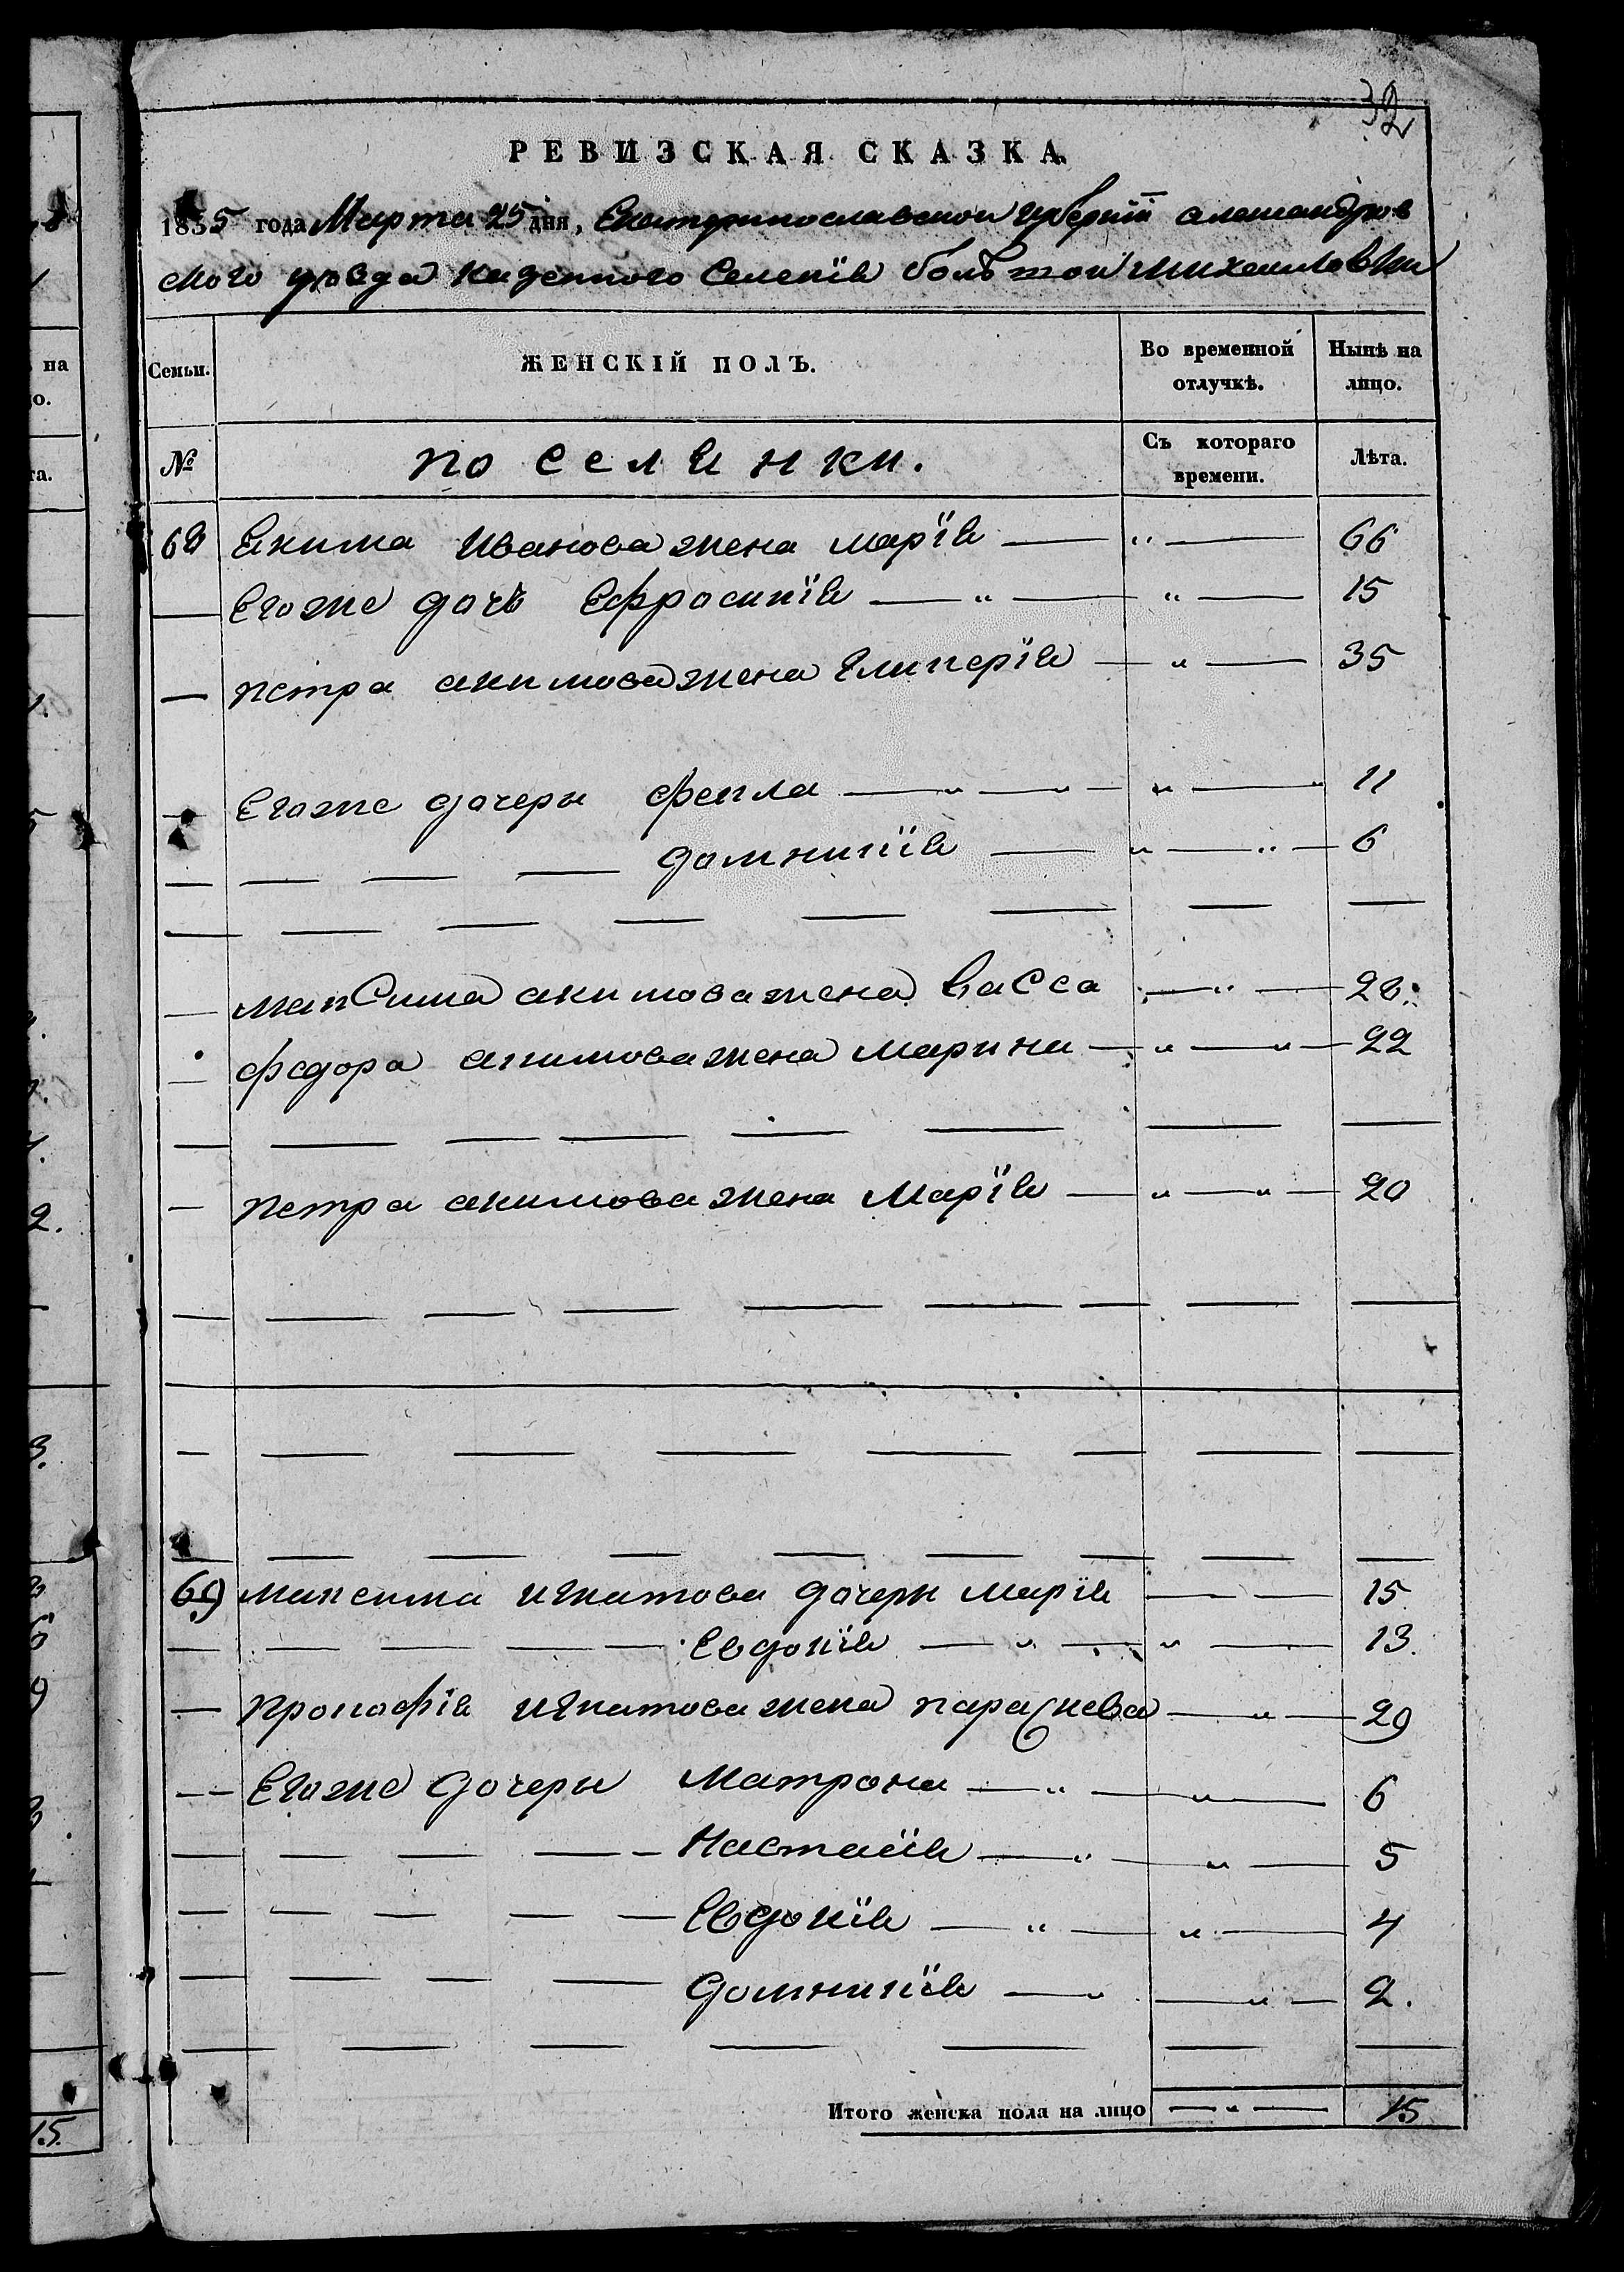 32
РЕВИЗСКАЯ СКАЗКА.
1835 года Марта 25 дня, Екатеринославской губерніи александров
ского уѣзда казенного Селенія большой михайловки
Семьи. ЖЕНСКІЙ ПОЛЪ. Во временной отлучкѣ. Нынѣ на лицо.
№ поселянки. Съ котораго времени. Лѣта.
68 Екима Иванова жена марія — " — 66
— Егоже дочь Ефросинія — " — " — 15
— петра акимова жена Гликерія — " — 35
— Егоже дочери фекла — " — " — " — " 11
— — — — домникія — " — " — 6
— — — — — — — —
— максима акимова жена васса — " — 28.
— федора акимова жена марина — " — " — 22
— — — — — — — —
— петра акимова жена марія — " — " — 20
— — — — — — — — —
— — — — — — — —
— — — — — — — — —
69 максима игнатова дочери марія — — 15
— — — — — Евдокія — " — " — 13.
— прокофія игнатова жена параскева — " — 29
— Егоже дочери матрона — " — " — 6
— — — — — настасія — " — " — 5
— — — — — Евдокія — " — " — 4
— — — — домникія — " — " — 2.
— — — — — — —
Итого женска пола на лицо — " — 15
на
о.
та.
2.
3.
15.